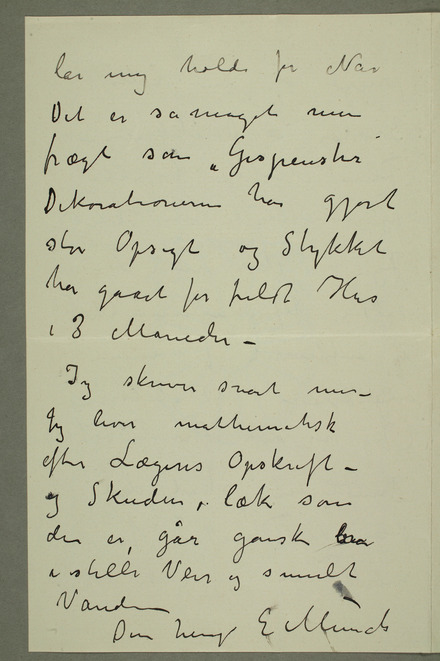 lar mig holde for Nar
Det er saameget mer
frægt som „Gespenster"
Dekorationerne har gjort
stor Opsigt og Stykket
har gaaet for fuldt Hus
i 3 Maaneder –
Jeg skriver snart mer –
Jeg lever mathematisk
efter Lægens Opskrift –
og Skuden, læk som
den er, går ganske bra
i stille Veir og smult
Vande
Din heng E Munch